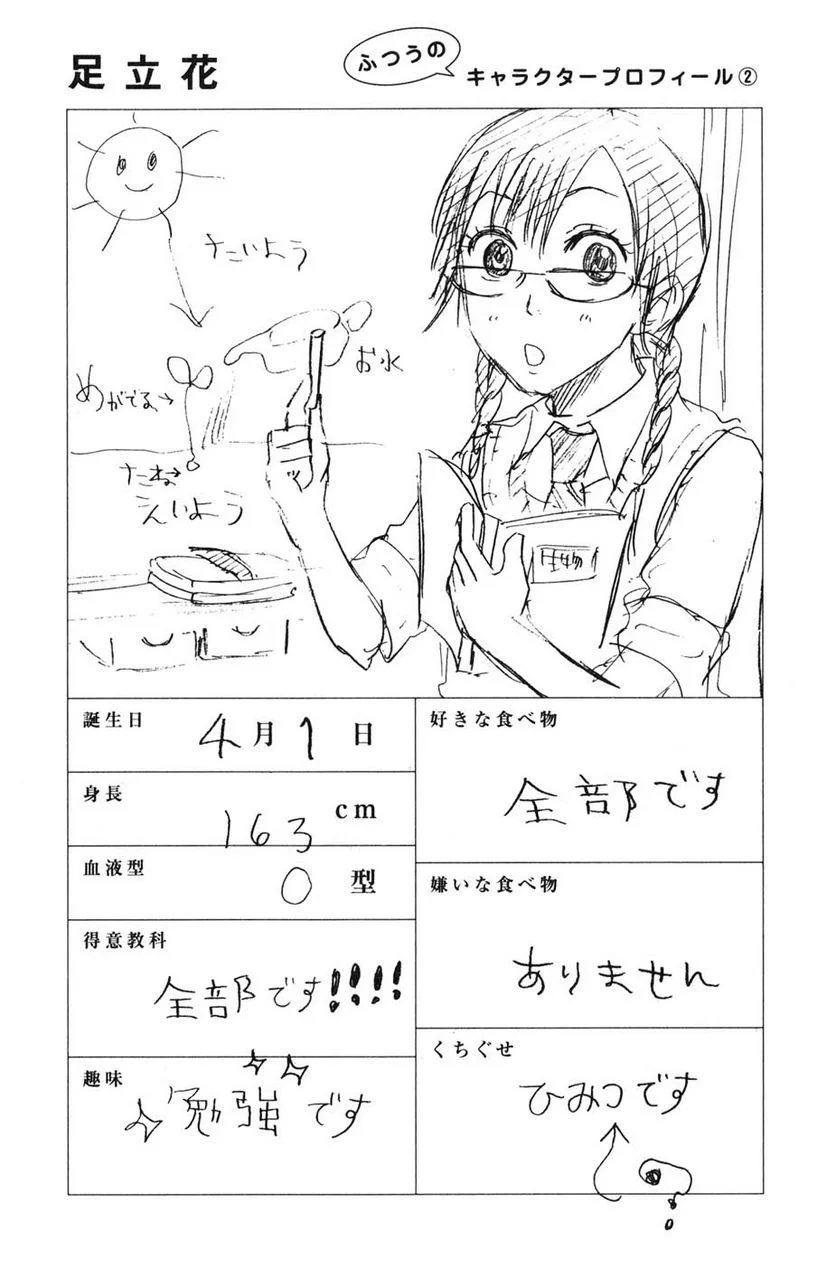 足立花
ふつうの
キャラクタープロフィール②
たいよう
お水
めがでる→
たね→
えいよう
生物1
誕生日
4月1日
身長
163cm
血液型
O型
得意教科
全部です!!!!
趣味
勉強です
好きな食べ物
全部です
嫌いな食べ物
ありません
くちぐせ
ひみつです